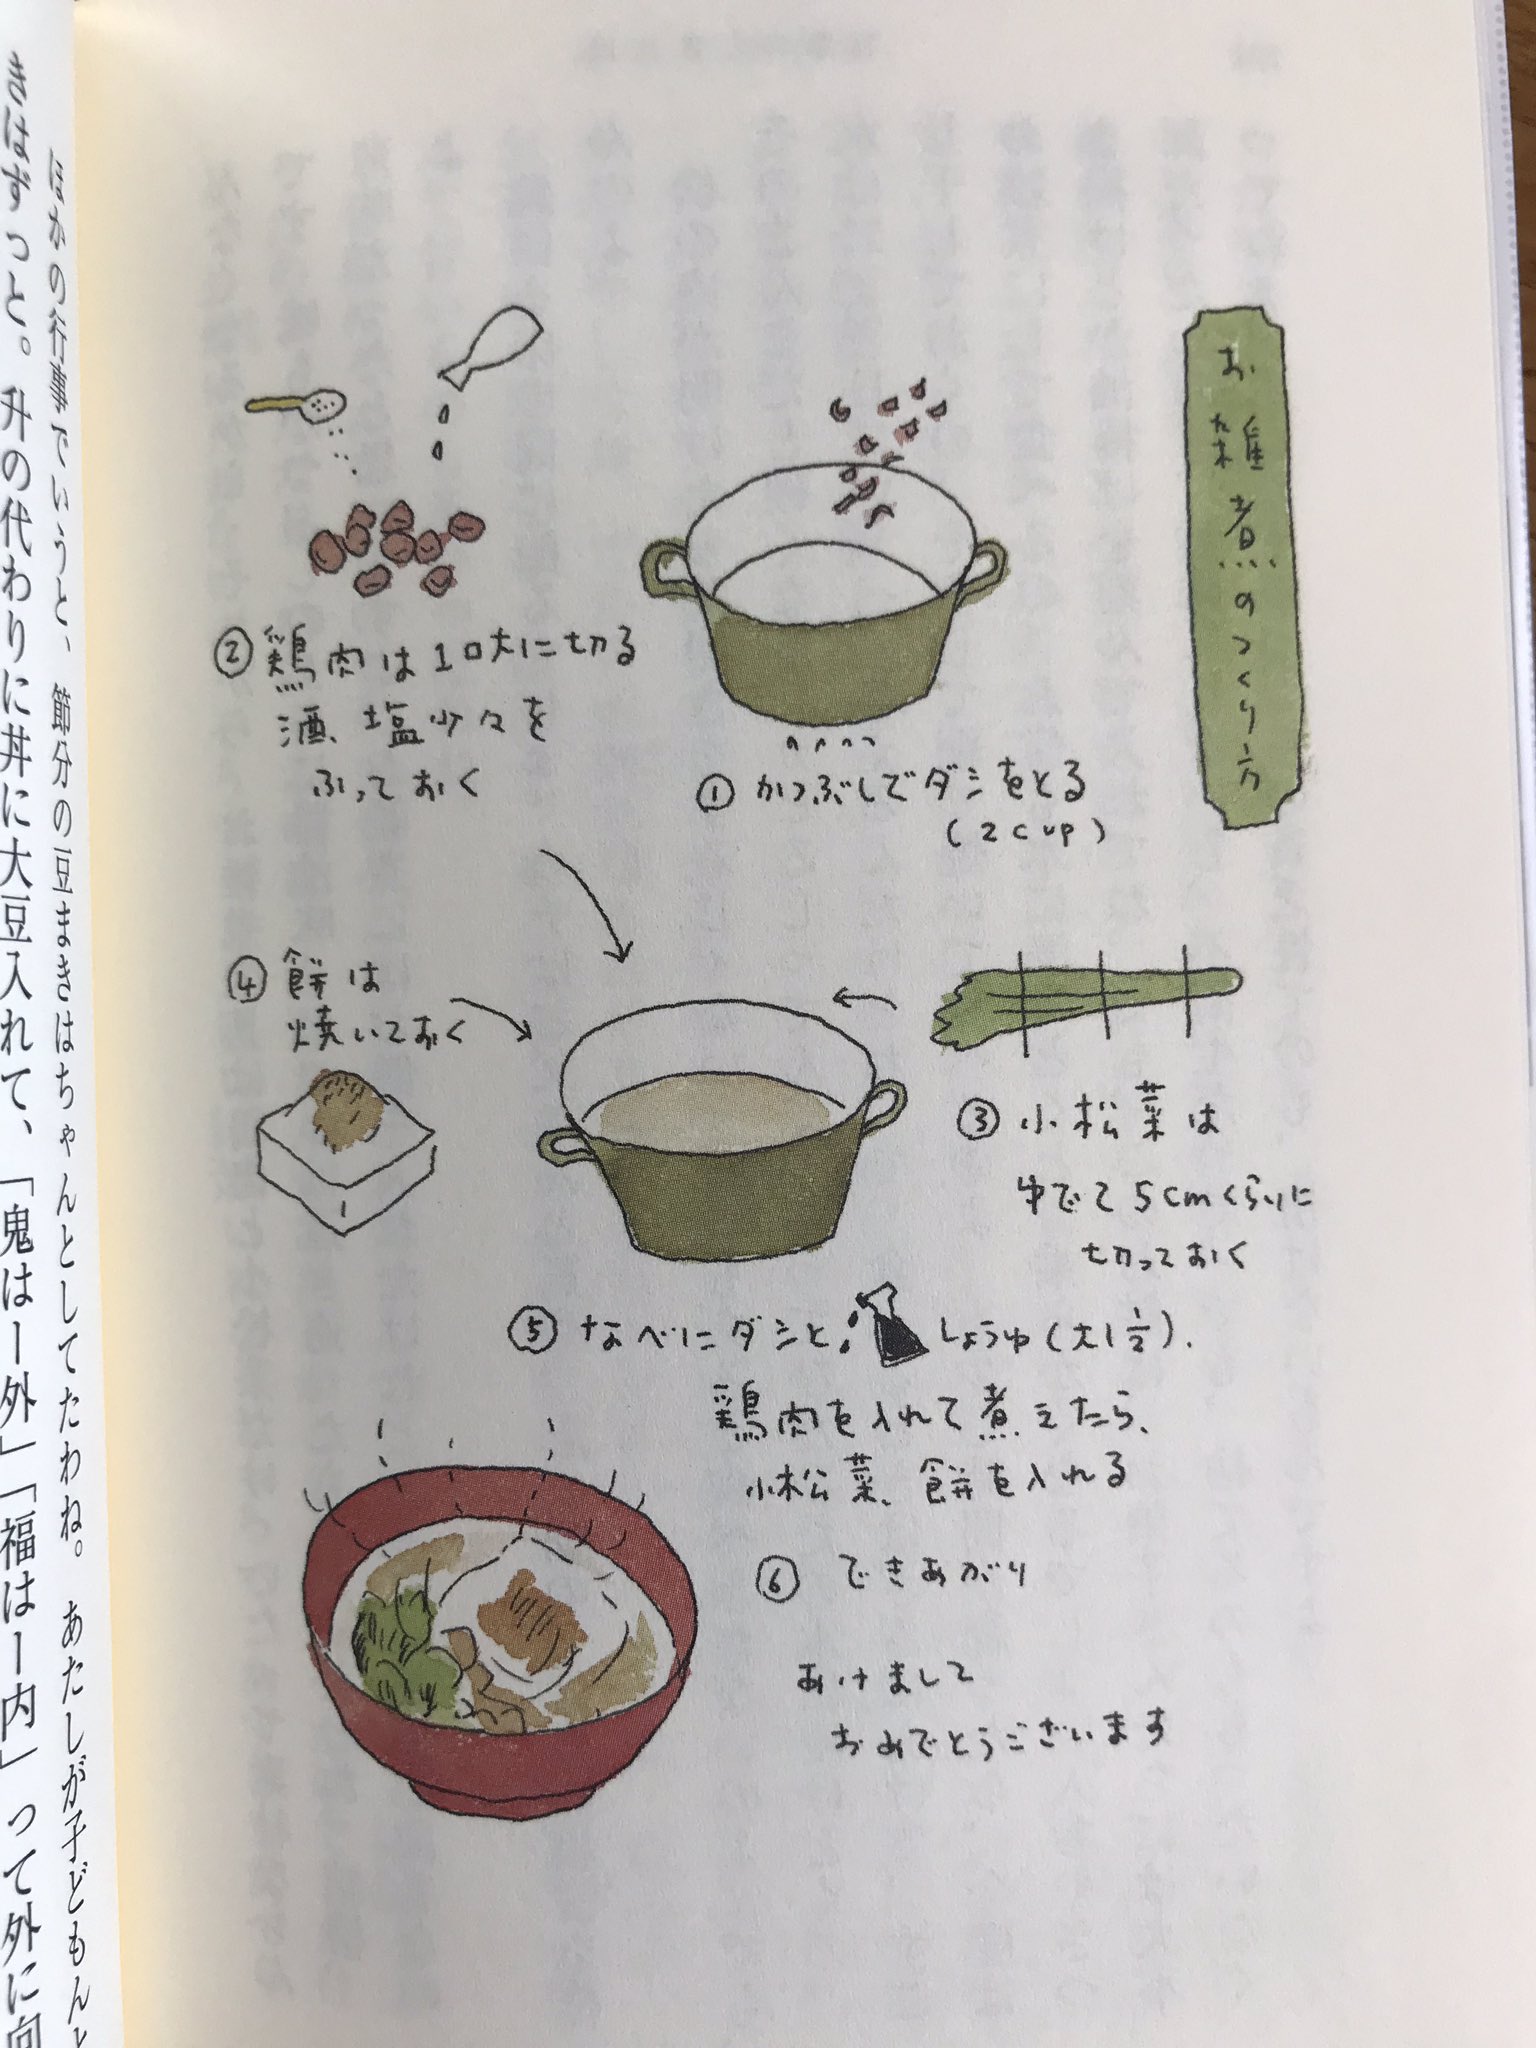 お雑煮のつくり方
① かつぶしでダシをとる
(2cup)
② 鶏肉は1口大に切る
酒、塩少々を
ふっておく
③ 小松菜は
ゆでて5cmくらいに
切っておく
④ 餅は
焼いておく
⑤ なべにダシと しょうゆ(大1½)、
鶏肉を入れて煮えたら、
小松菜、餅を入れる
⑥ できあがり
あけまして
おめでとうございます
ほかの行事でいうと、節分の豆まきはちゃんとしてたわね。あたしが子どもんと
きはずっと。升の代わりに丼に大豆入れて、「鬼はー外」「福はー内」って外に向